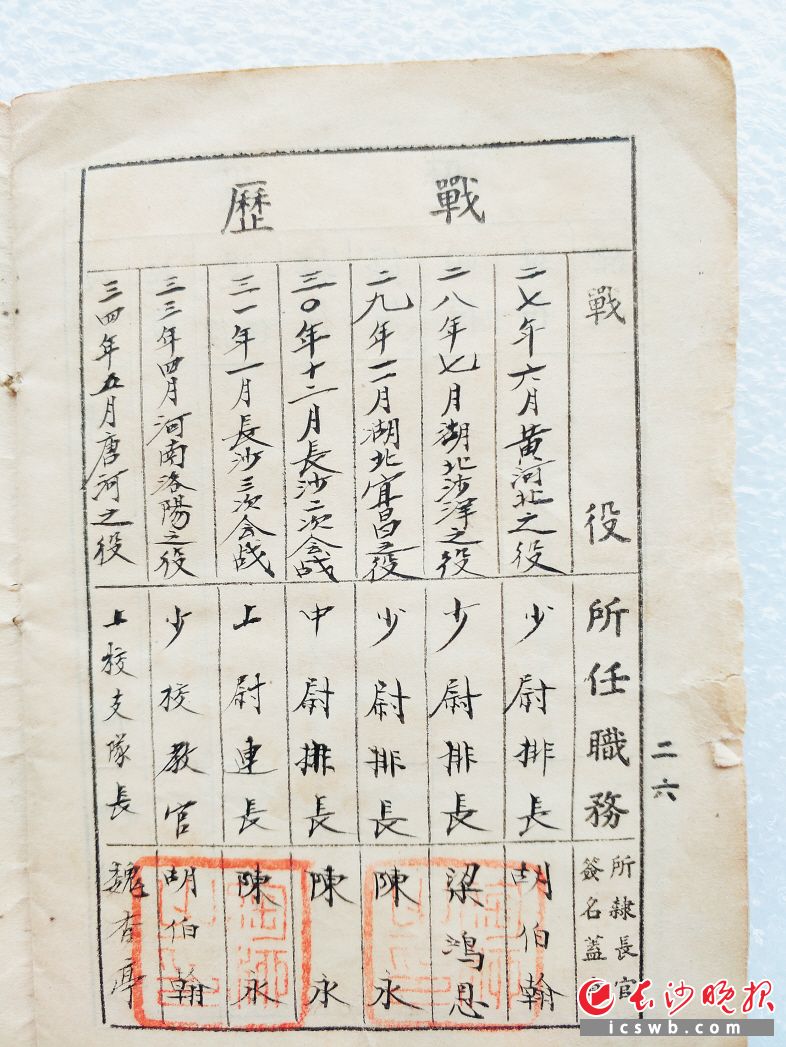 戰歷
戰役
所任職務
所隸長官
簽名蓋
二七年六月黃河北之役
少尉排長
胡伯翰
二八年七月湖北沙洋之役
少尉排長
梁鴻恩
二九年一二月湖北宜昌之役
少尉排長
陳永
三〇年十二月長沙二次会战
中尉排長
陳永
三一年一月長沙三次会战
上尉連長
陳永
三三年四月河南洛陽之役
少校教官
胡伯翰
三四年五月唐河之役
上校支隊長
魏
亭
二六
长沙晚报
icswb.com